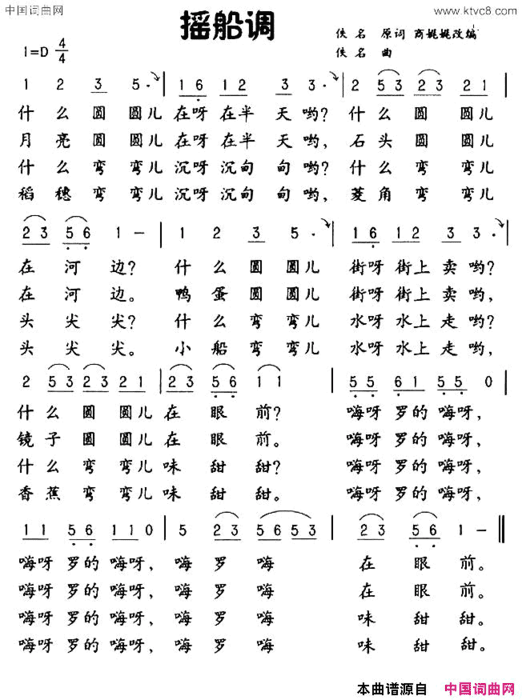 中国词曲网
www.ktvc8.com
摇船调
佚 名 原词 商娓娓改编
1=D 4/4
佚 名 曲
1 2 3 5· 1 6 1 2 3 3· 2 5 3 2 3 2 1
什 么 圆 圆儿 在呀 在半 天 哟? 什 么 圆 圆儿
月 亮 圆 圆儿 在呀 在半 天 哟, 石 头 圆 圆儿
什 么 弯 弯儿 沉呀 沉甸 甸 哟? 什 么 弯 弯儿
稻 穗 弯 弯儿 沉呀 沉甸 甸 哟, 菱 角 弯 弯儿
2 3 5 6 1 - 1 2 3 5· 1 6 1 2 3 3·
在 河 边? 什 么 圆 圆儿 街呀 街上 卖 哟?
在 河 边。 鸭 蛋 圆 圆儿 街呀 街上 卖 哟,
头 尖 尖? 什 么 弯 弯儿 水呀 水上 走 哟?
头 尖 尖。 小 船 弯 弯儿 水呀 水上 走 哟,
2 5 3 2 3 2 1 2 3 5 6 1 1 5 5 6 1 5 5 0
什 么 圆 圆儿 在 眼 前? 嗨呀 罗的 嗨呀,
镜 子 圆 圆儿 在 眼 前。 嗨呀 罗的 嗨呀,
什 么 弯 弯儿 味 甜 甜? 嗨呀 罗的 嗨呀,
香 蕉 弯 弯儿 味 甜 甜。 嗨呀 罗的 嗨呀,
1 1 5 6 1 1 0 5 2 3 5 6 5 3 2 3 5 6 1 -
嗨呀 罗的 嗨呀, 嗨 罗 嗨 在 眼 前。
嗨呀 罗的 嗨呀, 嗨 罗 嗨 在 眼 前。
嗨呀 罗的 嗨呀, 嗨 罗 嗨 味 甜 甜。
嗨呀 罗的 嗨呀, 嗨 罗 嗨 味 甜 甜。
本曲谱源自 中国词曲网